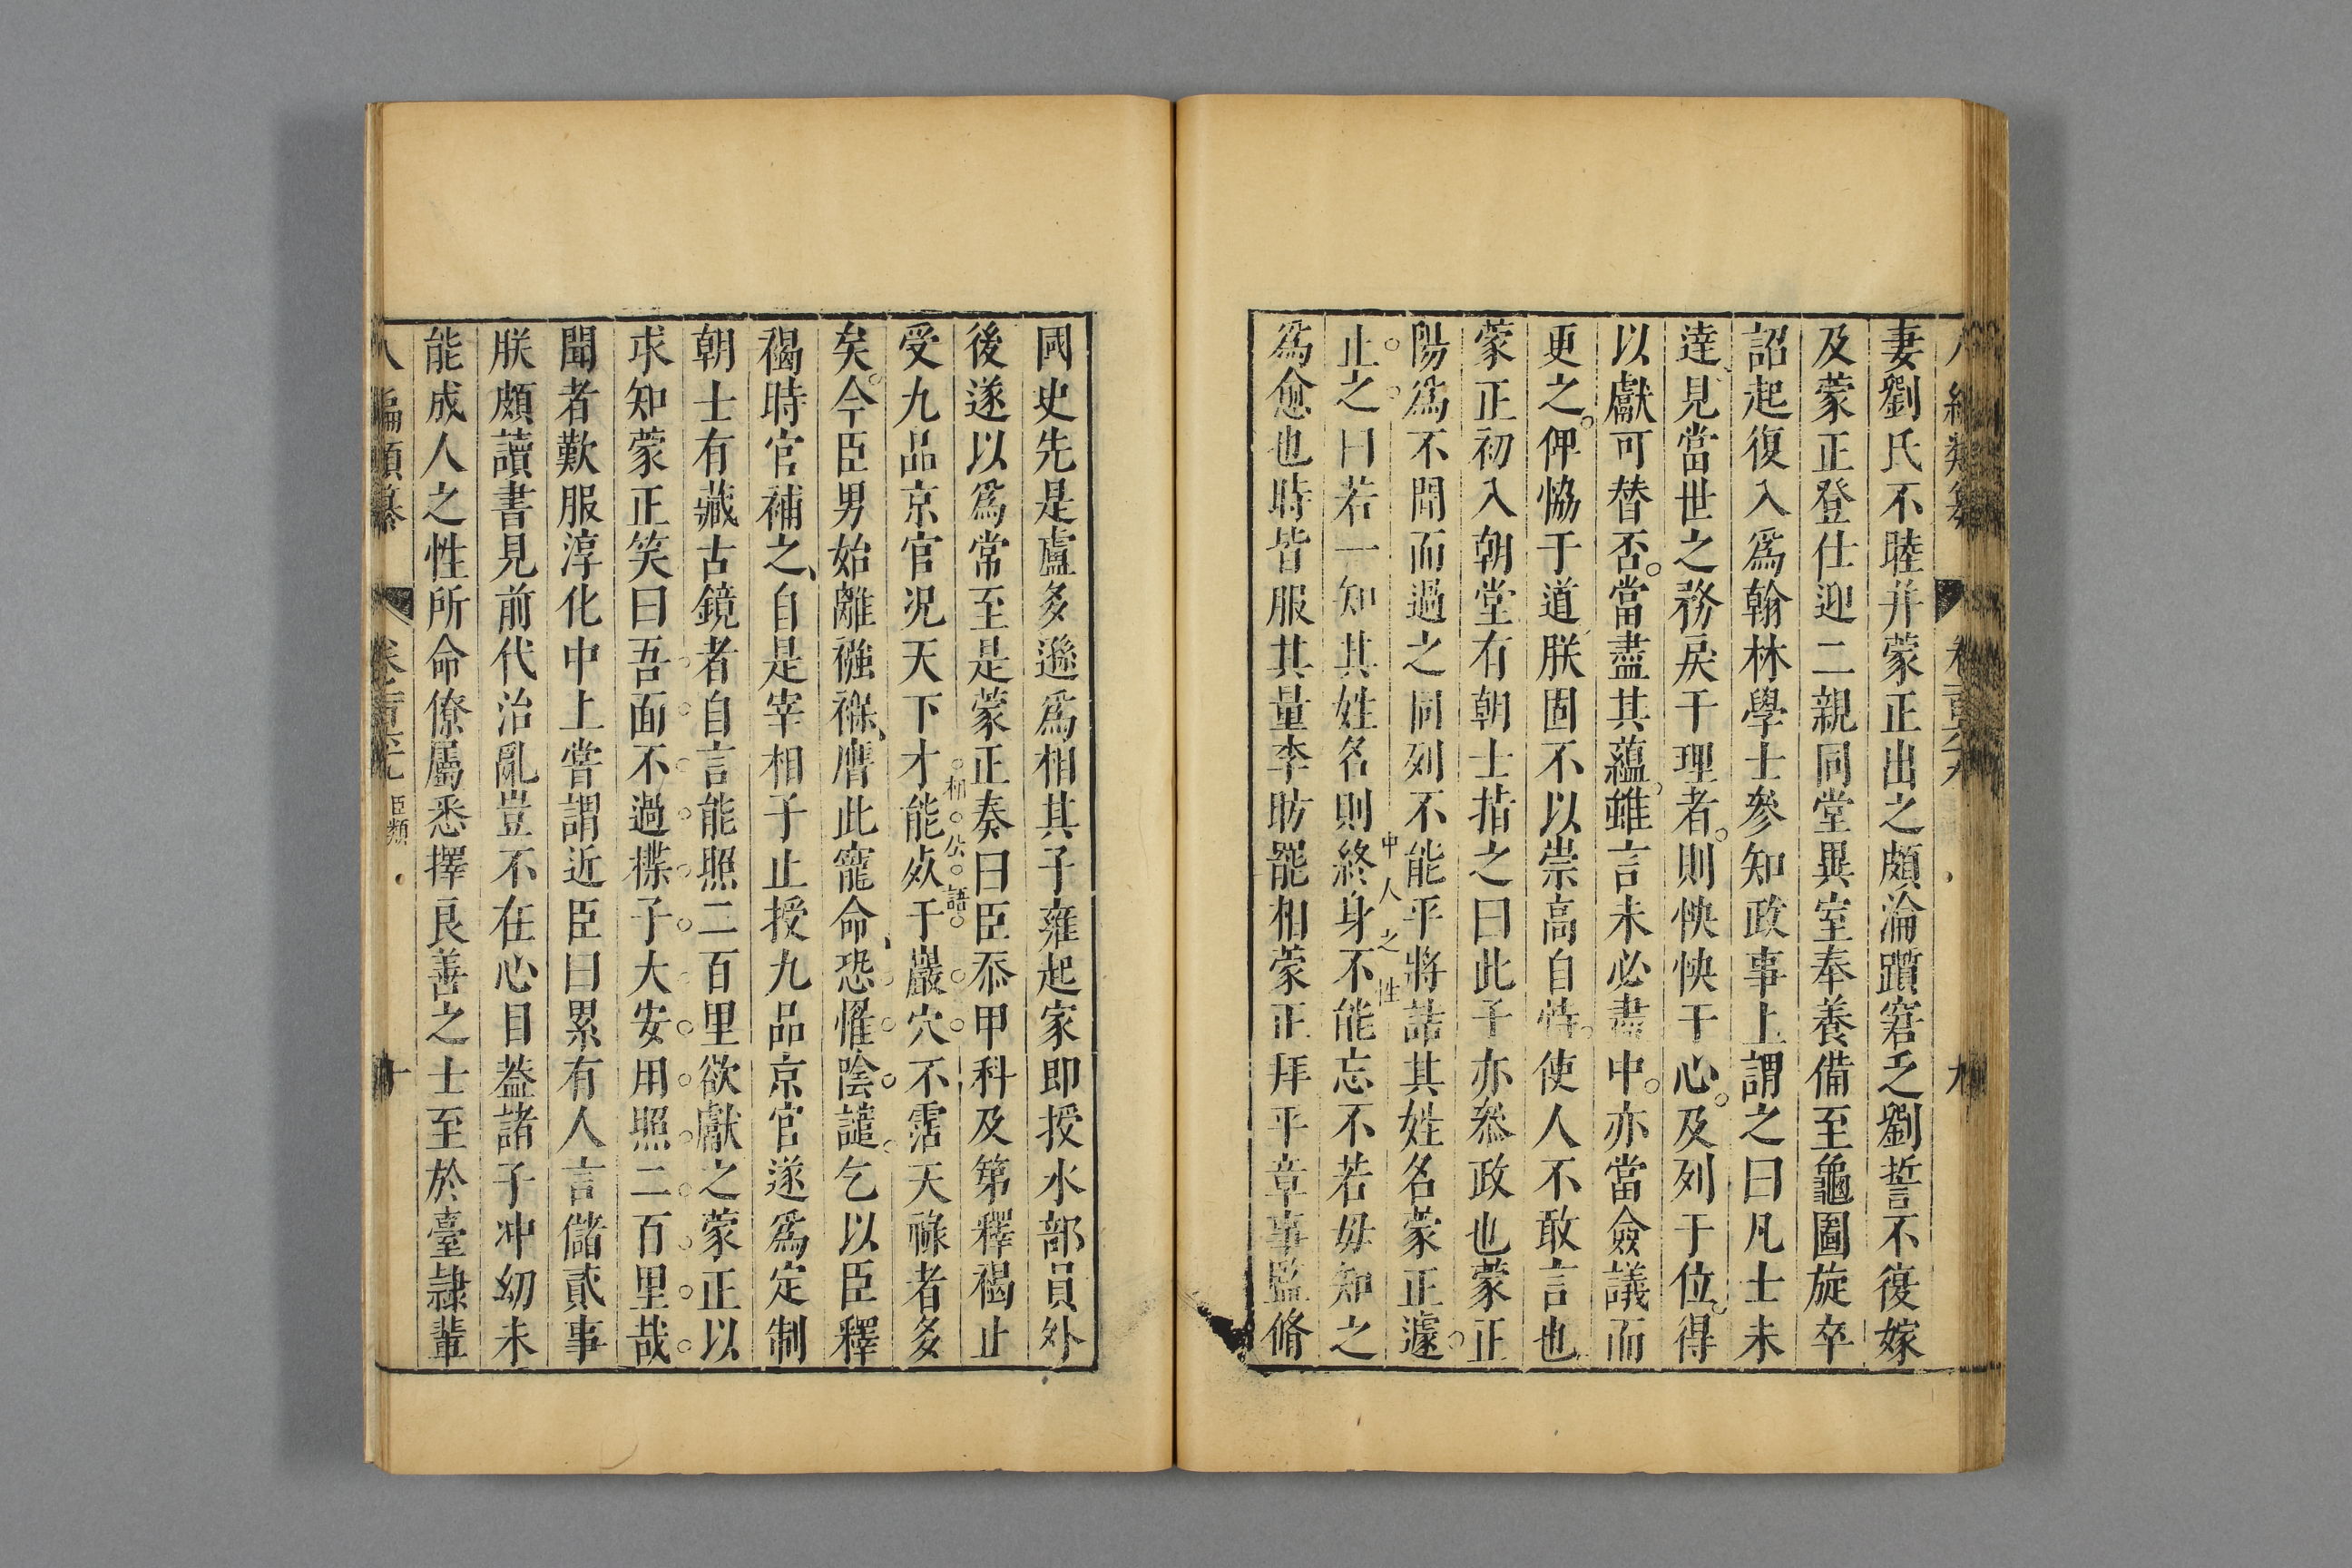 妻劉氏不睦并蒙正出之頗淪躓窘乏劉誓不復嫁
及蒙正登仕迎二親同堂異室奉養備至龜圖旋卒
詔起復入爲翰林學士參知政事上謂之曰凡士未
達見當世之務戾于理者則怏怏于心及列于位得
以獻可替否當盡其蘊雖言未必盡中亦當僉議而
更之俾恊于道朕固不以崇高自恃使人不敢言也
蒙正初入朝堂有朝士指之曰此子亦叅政也蒙正
陽爲不聞而過之同列不能平將詰其姓名蒙正遽
中人之性
止之曰若一知其姓名則終身不能忘不若毋知之
爲愈也時皆服其量李昉罷相蒙正拜平章事監脩
國史先是盧多遜爲相其子雍起家即授水部員外
後遂以爲常至是蒙正奏曰臣忝甲科及第釋褐止
相公語
受九品京官况天下才能於于巖穴不霑天祿者多
矣今臣男始離襁褓膺此寵命恐惟陰譴乞以臣釋
褐時官補之自是宰相子止授九品京官遂爲定制
朝士有藏古鏡者自言能照二百里欲獻之蒙正以
求知蒙正笑曰吾面不過楪子大安用照二百里哉
聞者歎服淳化中上嘗謂近臣曰累有人言儲貳事
朕頗讀書見前代治亂豈不在心目葢諸子冲幼未
能成人之性所命僚屬悉擇良善之士至於臺隷輩
八編類纂 臣類 十